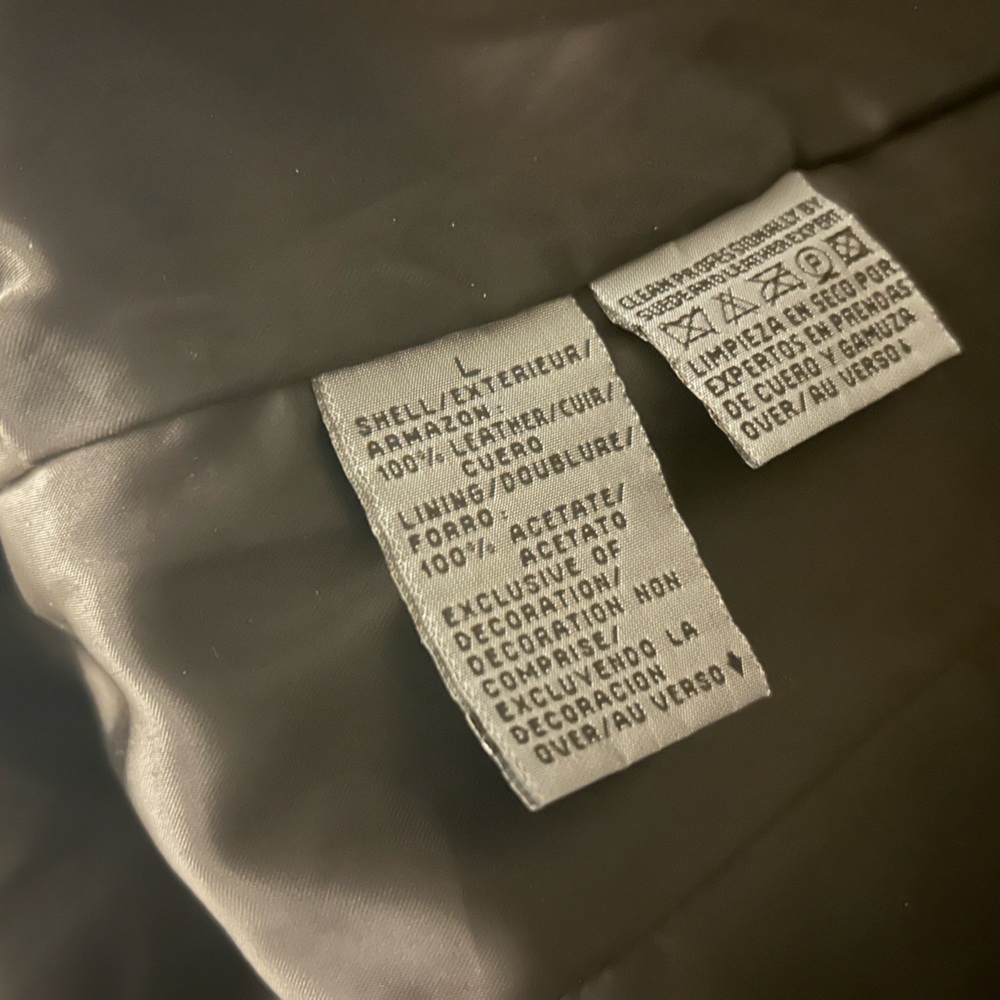 L
SHELL/EXTERIEUR/
ARMAZON:
100% LEATHER/CUIR/
CUERO
LINING/DOUBLURE/
FORRO:
100% ACETATE/
ACETATO
EXCLUSIVE OF
DECORATION/
DECORATION NON
COMPRISE/
EXCLUYENDO LA
DECORACION
OVER/AU VERSO
CLEAN PROFESSIONALLY BY
SUEDE AND LEATHER EXPERT
P
LIMPIEZA EN SECO POR
EXPERTOS EN PRENDAS
DE CUERO Y GAMUZA
OVER/AU VERSO